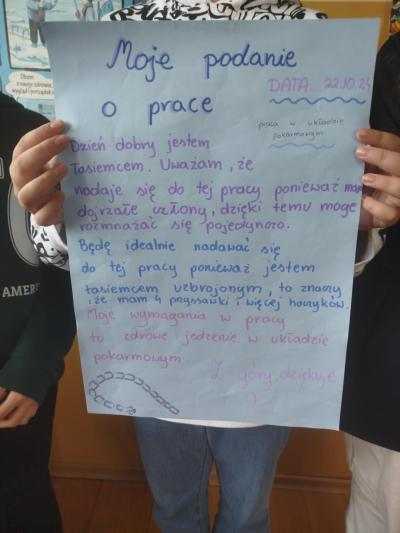 Moje podanie
o pracę
DATA...22.10.24
praca w układzie
pokarmowym
Dzień dobry jestem
Tasiemcem. Uważam, że
nadaje się do tej pracy ponieważ mam
dojrzałe człony, dzięki temu mogę
rozmnażać się pojedynczo.
Będę idealnie nadawać się
do tej pracy ponieważ jestem
tasiemcem uzbrojonym, to znaczy
, że mam 4 przyssawki i więcej haczyków.
Moje wymagania w pracy
to zdrowe jedzenie w układzie
pokarmowym.
Z góry, dziękuje
:)
AMER